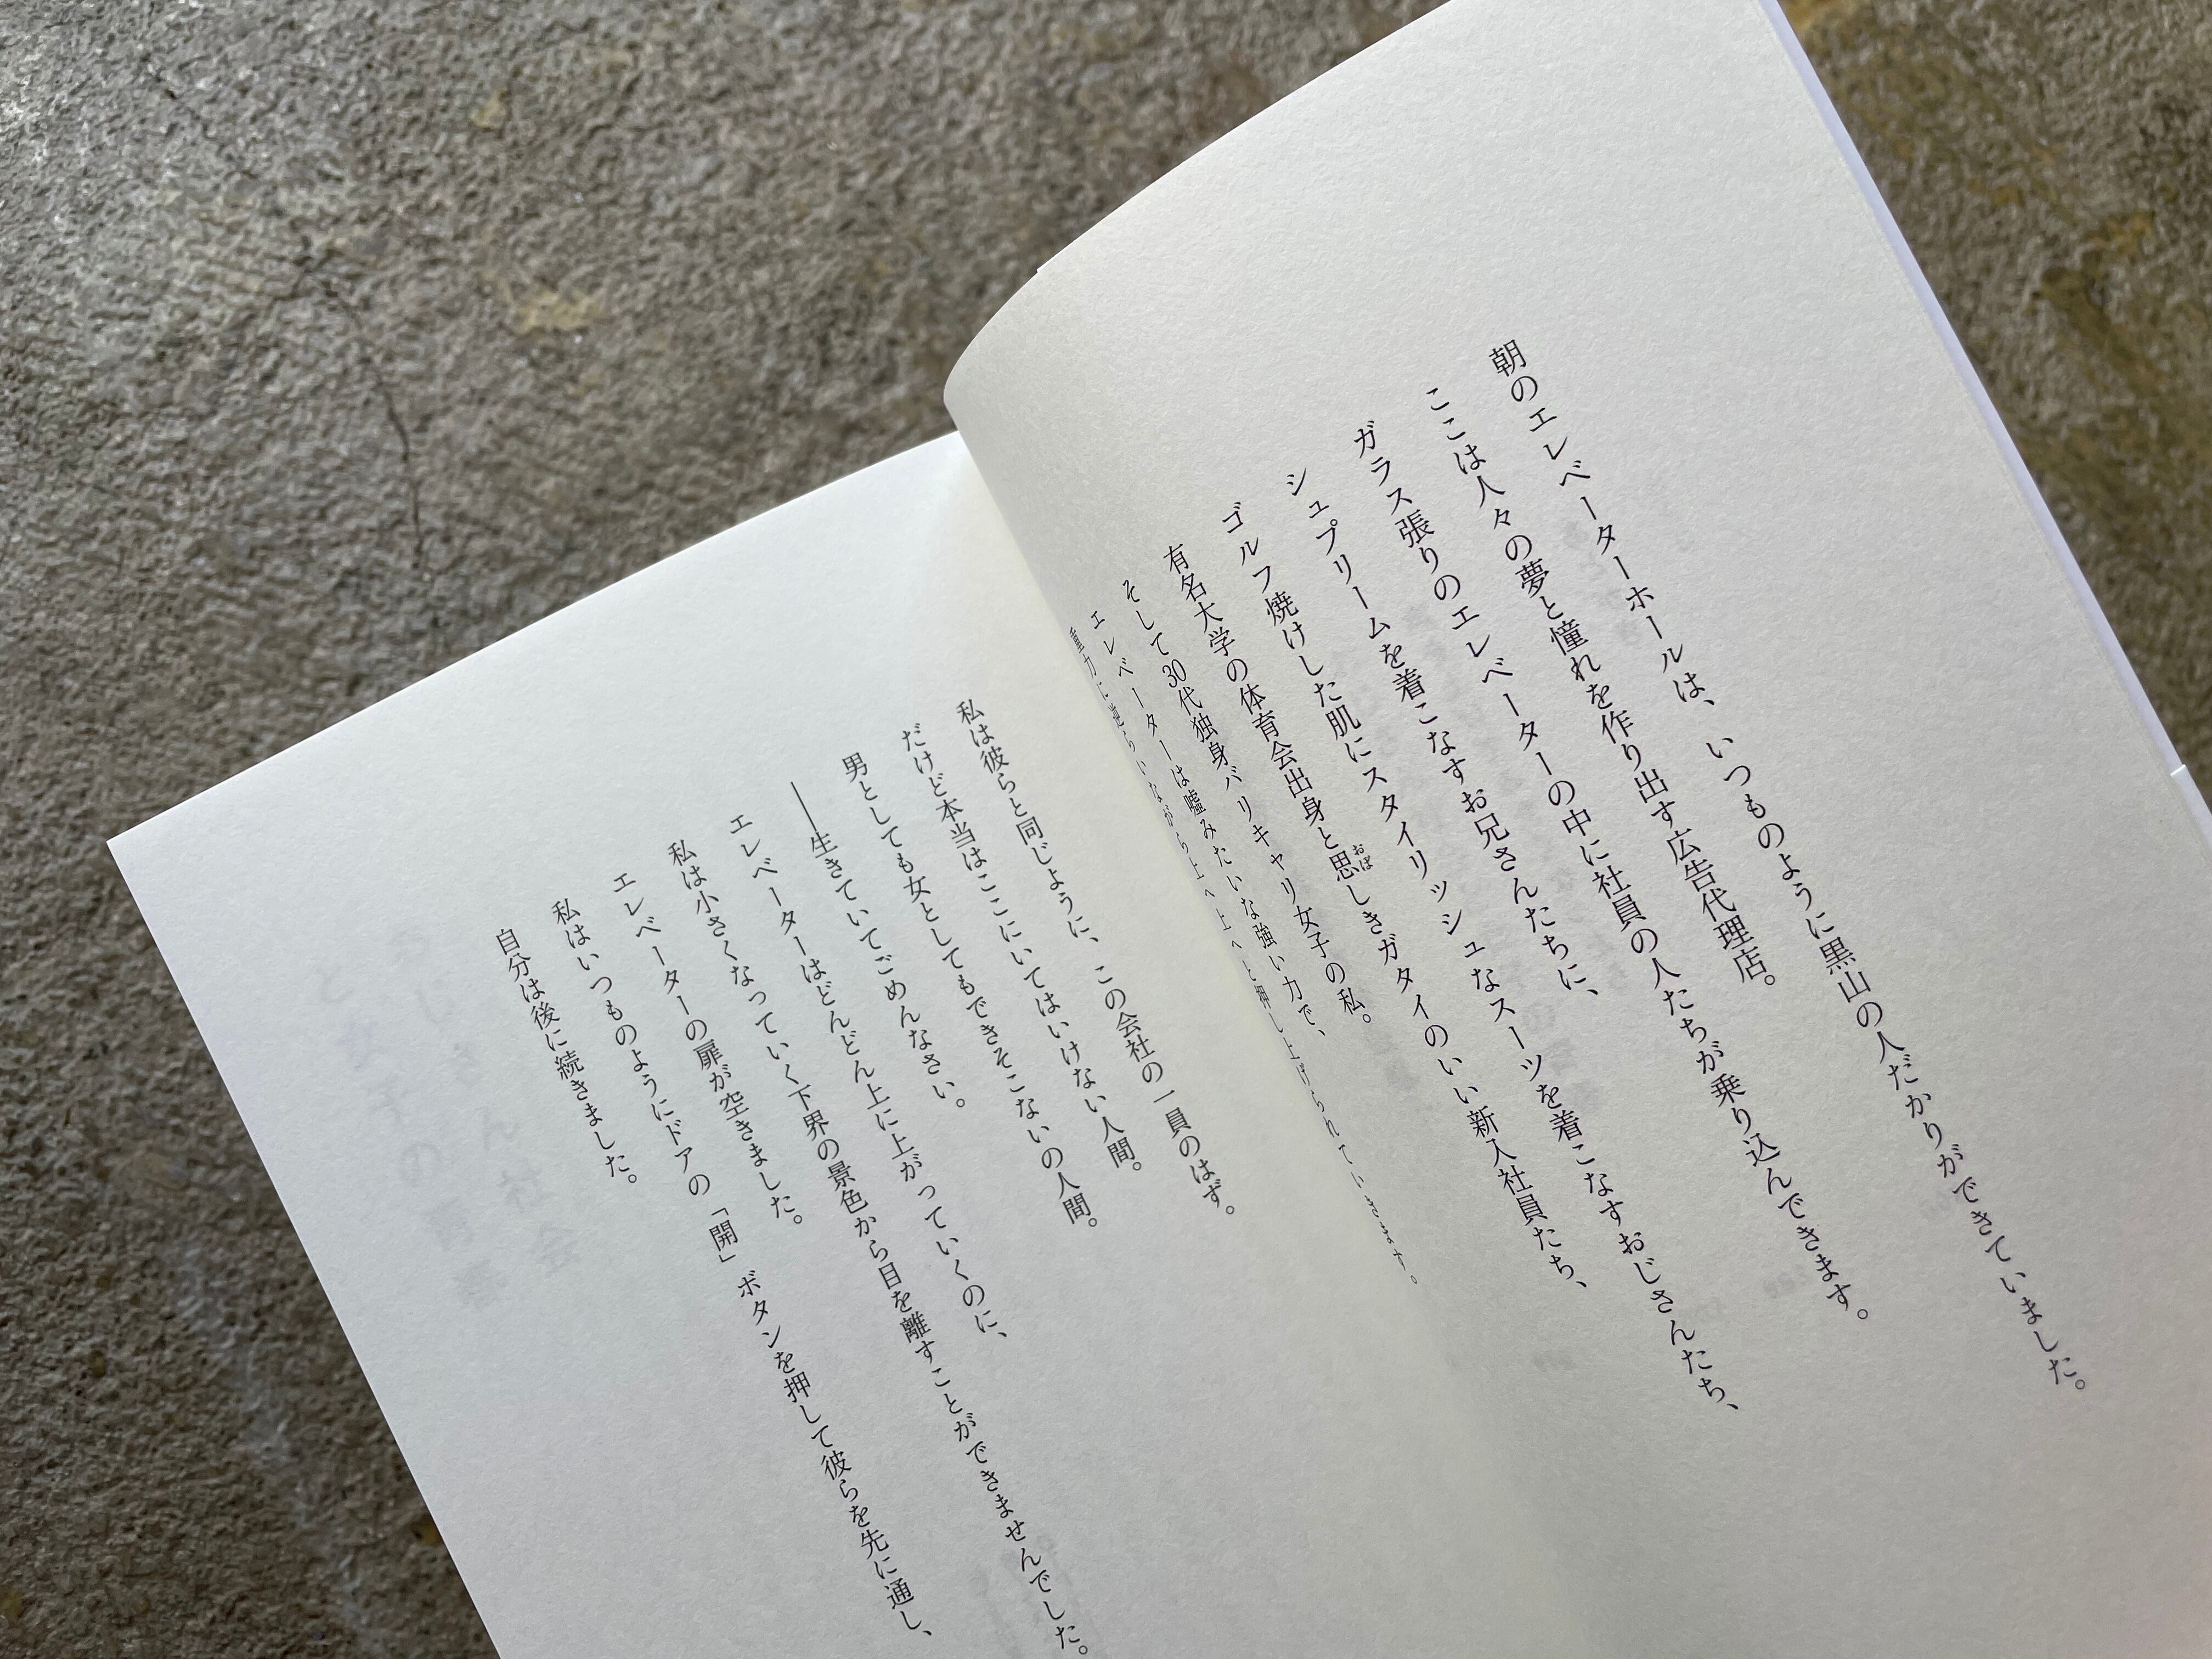 朝のエレベーターホールは、いつものように黒山の人だかりができていました。
ここは人々の夢と憧れを作り出す広告代理店。
ガラス張りのエレベーターの中に社員の人たちが乗り込んできます。
シュプリームを着こなすお兄さんたちに、
ゴルフ焼けした肌にスタイリッシュなスーツを着こなすおじさんたち、
有名大学の体育会出身と思しきガタイのいい新入社員たち、
おぼ
そして30代独身バリキャリ女子の私。
エレベーターは嘘みたいな強い力で、
重力に逆らいながら上へ上へと押し上げられていきます。
私は彼らと同じように、この会社の一員のはず。
だけど本当はここにいてはいけない人間。
男としても女としてもできそこないの人間。
──生きていてごめんなさい。
エレベーターはどんどん上に上がっていくのに、
私は小さくなっていく下界の景色から目を離すことができませんでした。
エレベーターの扉が空きました。
私はいつものようにドアの「開」ボタンを押して彼らを先に通し、
自分は後に続きました。